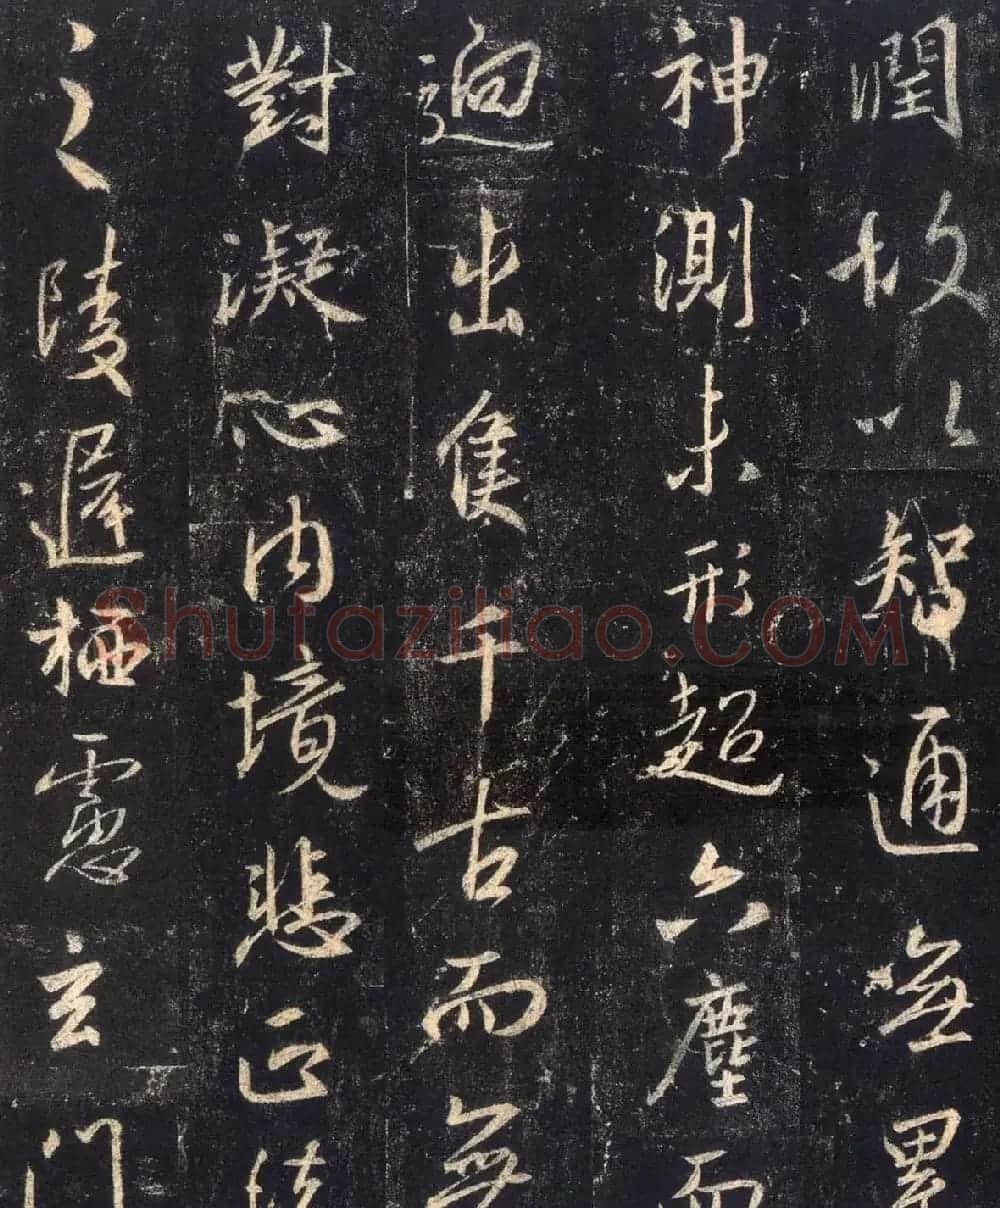 潤故以智通無累
神測未形超六塵而
迥出隻千古而無
對凝心內境悲正法
之陵遲栖慮玄門
Shufaziliao.COM